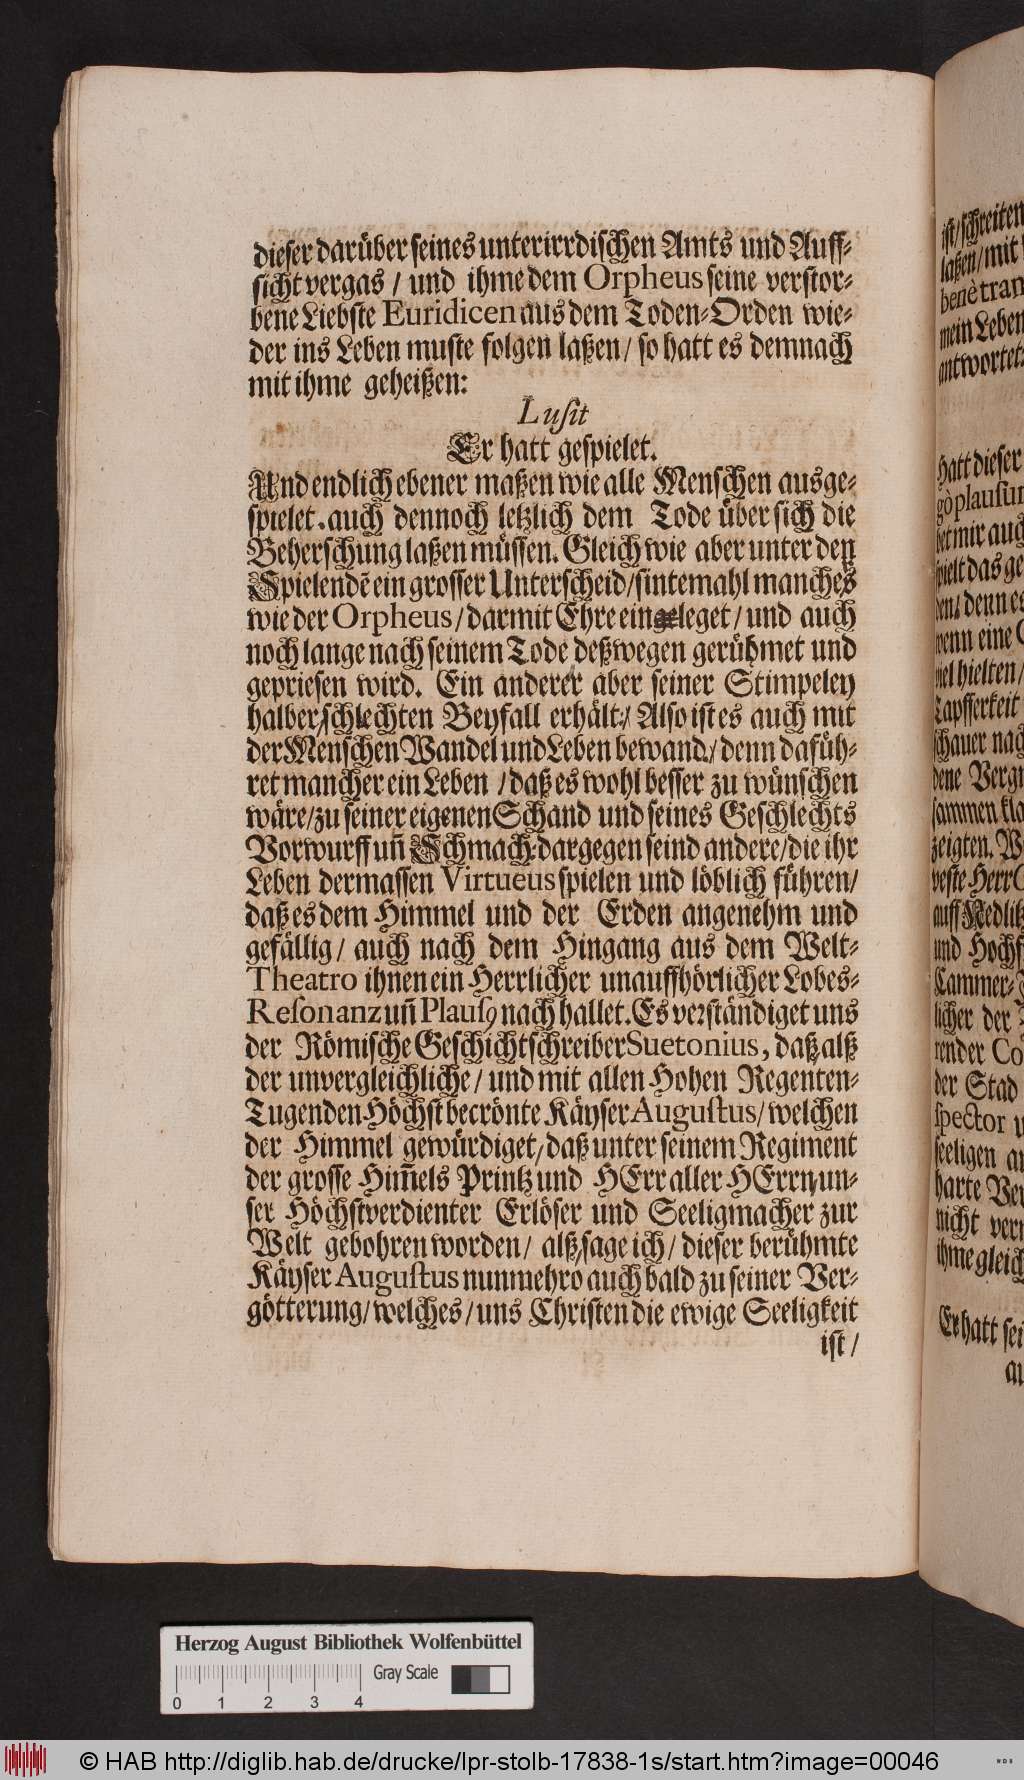 dieser darüber seines unterirrdischen Amts und Auff-
sicht vergas / und ihme dem Orpheus seine verstor-
bene Liebste Euridicen aus dem Toden-Orden wie-
der ins Leben muste folgen laßen / so hatt es demnach
mit ihme geheißen:
Lusit
Er hatt gespielet.
Und endlich ebener maßen wie alle Menschen ausge-
spielet. auch dennoch letzlich dem Tode über sich die
Beherschung laßen müssen. Gleich wie aber unter den
Spielendē ein grosser Unterscheid / sintemahl manches
wie der Orpheus / darmit Ehre eingeleget / und auch
noch lange nach seinem Tode deßwegen gerühmet und
gepriesen wird. Ein anderer aber seiner Stimpeley
halber / schlechten Beyfall erhält: / Also ist es auch mit
der Menschen Wandel und Leben bewand. / denn da füh-
ret mancher ein Leben / daß es wohl besser zu wünschen
wäre / zu seiner eigenen Schand und seines Geschlechts
Vorwurff uñ Schmach. dargegen seind andere / die ihr
Leben dermassen Virtueus spielen und löblich führen /
daß es dem Himmel und der Erden angenehm und
gefällig / auch nach dem Hingang aus dem Welt-
Theatro ihnen ein Herrlicher unauffhörlicher Lobes-
Resonanz uñ Plausꝰ nach hallet. Es verständiget uns
der Römische Geschichtschreiber Suetonius, daß alß
der unvergleichliche / und mit allen Hohen Regenten-
Tugenden Höchst becrönte Käyser Augustus / welchen
der Himmel gewürdiget / daß unter seinem Regiment
der grosse Him̃els Printz und HErr aller HErrn / un-
ser Höchstverdienter Erlöser und Seeligmacher zur
Welt gebohren worden / alß / sage ich / dieser berühmte
Käyser Augustus nunmehro auch bald zu seiner Ver-
götterung / welches / uns Christen die ewige Seeligkeit
ist /
ist / schreiten
laßen / mit
benè tran
mein Leben
antwortet:
Hatt dieser
gò plausum
bet mir aug
spielt das ge
den: denn es
wenn eine
viel hielten /
Tapfferkeit
schauer nach
dene Vergn
sammen kla
zeigten. W
veste Herr
auff Nedlitz
und Hochf
Cammer-
licher der
render Co
der Stad
spector u
seeligen an
harte Ver
nicht verm
ihme gleich
Er hatt sei
au
Herzog August Bibliothek Wolfenbüttel
Gray Scale
0 1 2 3 4
© HAB http://diglib.hab.de/drucke/lpr-stolb-17838-1s/start.htm?image=00046